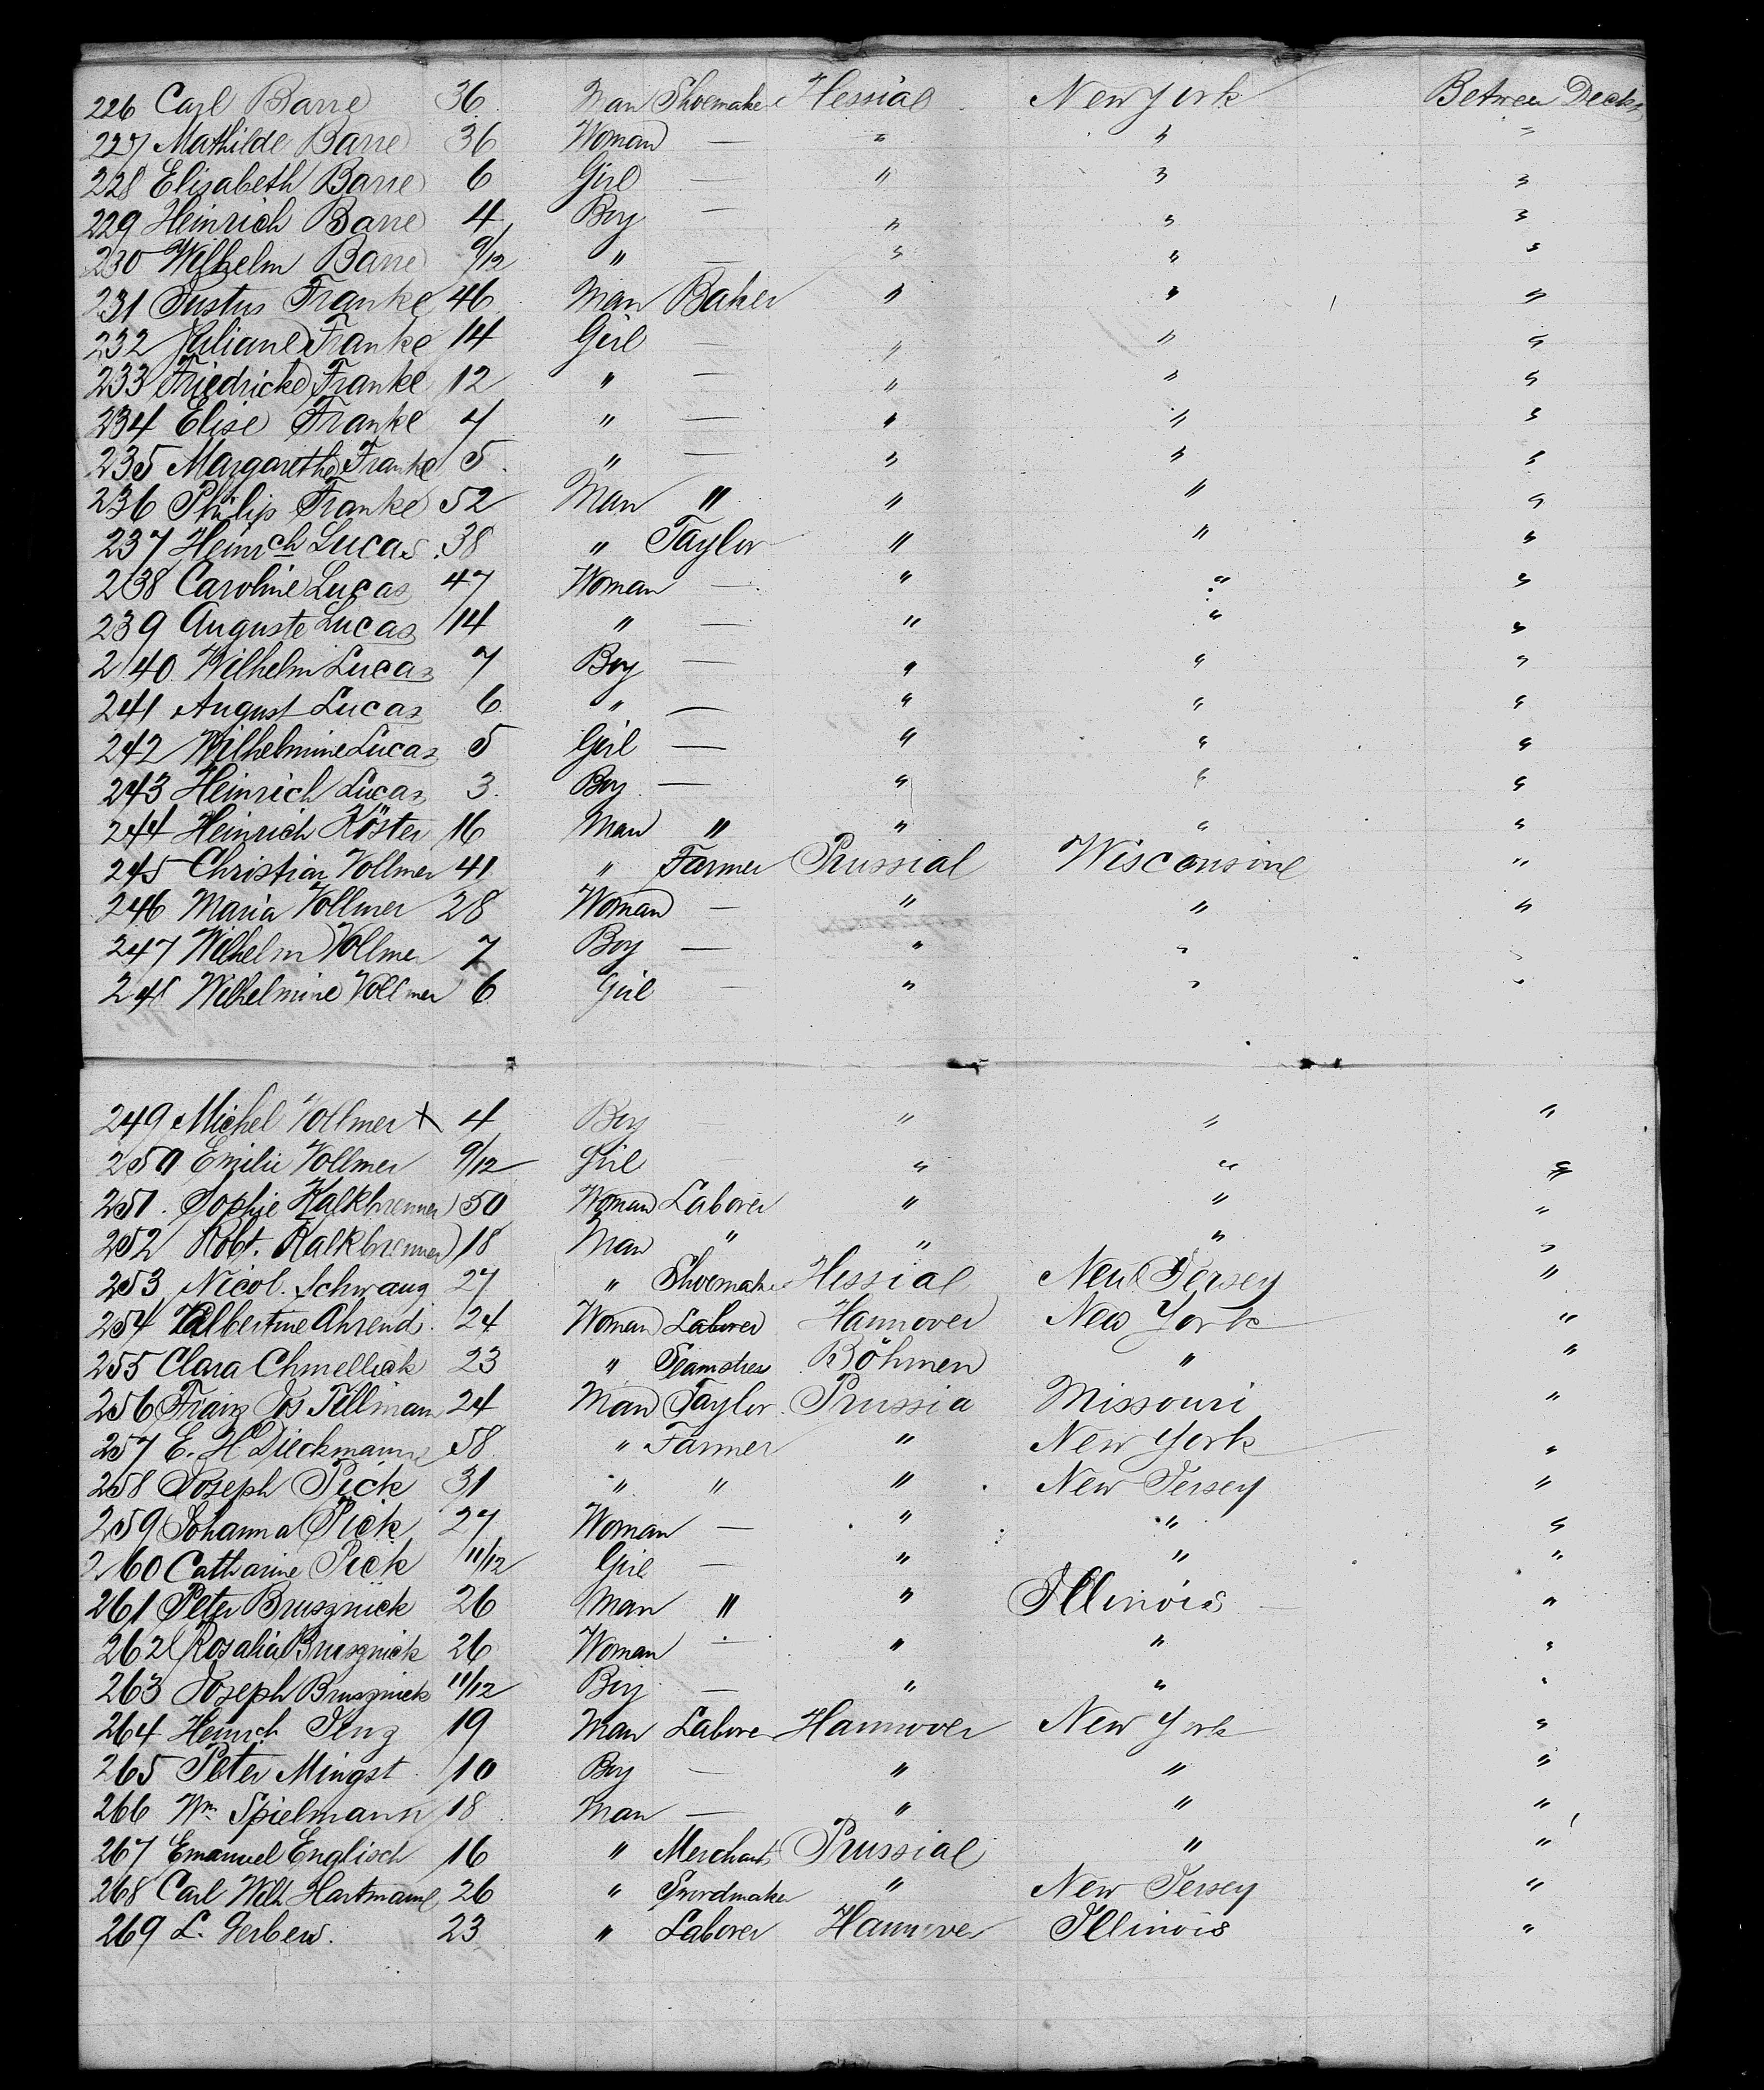 226 Carl Barre 36 Man Shoemaker Hessia New York Between Decks
227 Mathilde Barre 36 Woman — " " "
228 Elisabeth Barre 6 Girl — " " "
229 Heinrich Barre 4 Boy — " " "
230 Wilhelm Barre 9/12 " — " " "
231 Justus Franke 46 Man Baker " " "
232 Juliane Franke 14 Girl — " " "
233 Friedricke Franke 12 " — " " "
234 Elise Franke 7 " — " " "
235 Margarethe Franke 5 " — " " "
236 Philip Franke 52 Man " " " "
237 Heinrch Lucas 38 " Taylor " " "
238 Caroline Lucas 47 Woman — " " "
239 Auguste Lucas 14 " — " " "
240 Wilhelm Lucas 7 Boy — " " "
241 August Lucas 6 " — " " "
242 Wilhelmine Lucas 5 Girl — " " "
243 Heinrich Lucas 3 Boy — " " "
244 Heinrich Köster 16 Man " " " "
245 Christian Vollmer 41 " Farmer Prussia Wisconsine "
246 Maria Vollmer 28 Woman — " " "
247 Wilhelm Vollmer 7 Boy — " " "
248 Wilhelmine Vollmer 6 Girl — " " "
249 Michel Vollmer x 4 Boy " " "
250 Emilie Vollmer 9/12 Girl — " " "
251 Sophie Kalkbrenner 50 Woman Laborer " " "
252 Robt. Kalkbrenner 18 Man " " " "
253 Nicol. Schwang 27 " Shoemaker Hessia New Jersey "
254 Albertine Ahrend 24 Woman Laborer Hannover New York "
255 Clara Chmellick 23 " Seamstress Böhmen " "
256 Franz Jos Tillman 24 Man Taylor Prussia Missouri "
257 E. H. Dieckmann 58 " Farmer " New York "
258 Joseph Pick 31 " " " New Jersey "
259 Johanna Pick 27 Woman — " " "
260 Catharine Pick 11/12 Girl — " " "
261 Peter Brusznick 26 Man " " Illinois "
262 Rosalia Brusznick 26 Woman — " " "
263 Joseph Brusznick 11/12 Boy — " " "
264 Heinrch 19 Man Laborer Hannover New York "
265 Peter Mingst 10 Boy — " " "
266 Wm. Spielmann 18 Man — " " "
267 Emanuel Englisch 16 " Merchant Prussia " "
268 Carl Wilh Hartmann 26 " Swordmaker " New Jersey "
269 L. Gerbers. 23 " Laborer Hannover Illinois "